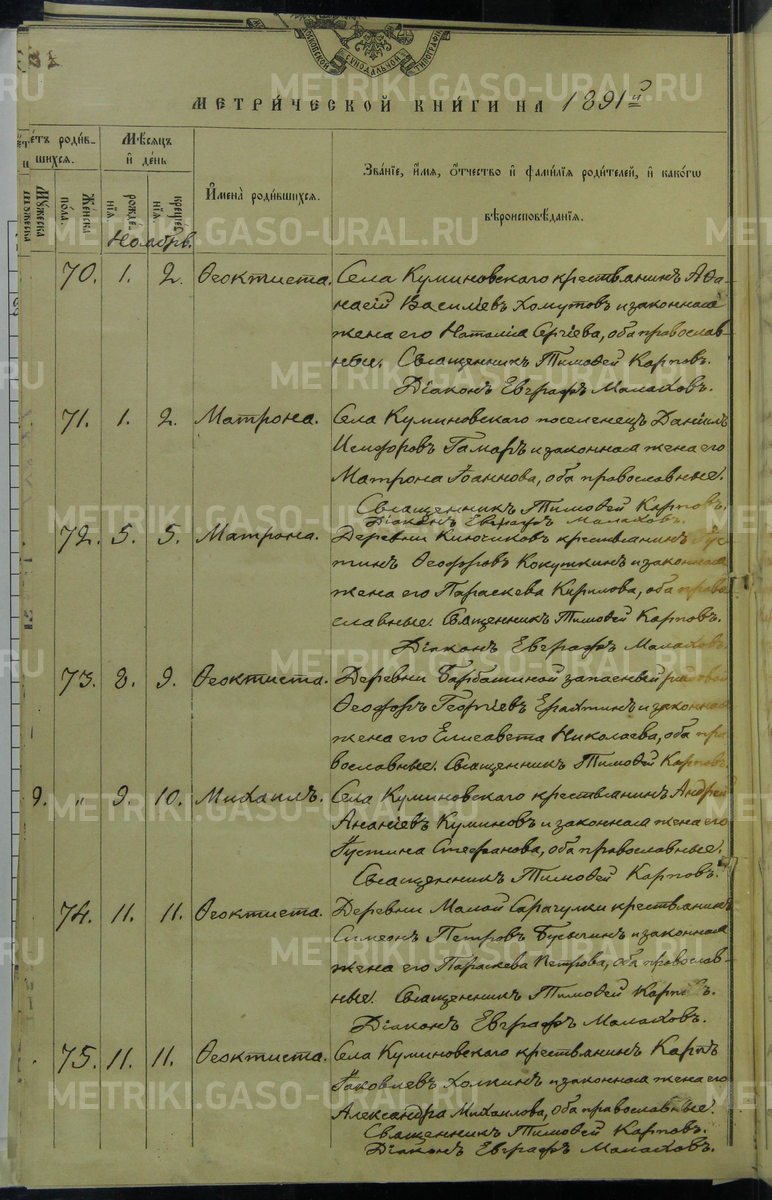 МЕТРИ́ЧЕСКОЙ КНИ́ГИ НА 1891й
МОСКОВСКОЙ СѴНОДАЛЬНОЙ ТИПОГРАФІИ
етъ роди́в-
шихся.
Мѣ́сяцъ
и҆ де́нь
Же́нска
по́ла
рожде́
нїѧ
креще́
нїѧ
Имена̀ роди́вшихся.
Зва́нїе, и҆́мя, ѻ҆́тчество и҆ фами́лїя роди́телей, и҆ како́гѡ
вѣроисповѣ́данїя.
Ноябрь.
70. 1. 2. Ѳеоктиста. Села Куминовскаго крестьянинъ Аѳа-
насій Василіевъ Хомутовъ и законная
жена его Наталія Сергіева, оба православ-
ные. Священникъ Тимоѳей Карповъ.
Діаконъ Евграфъ Малаховъ.
71. 1. 2. Матрона. Села Куминовскаго поселенецъ Даніилъ
Гамаръ и законная жена его
Матрона Іоаннова, оба православные.
Священникъ Тимоѳей Карповъ.
Діаконъ Евграфъ Малаховъ.
72. 5. 5. Матрона. Деревни Ключиковъ крестьянинъ Іус-
тинъ Ѳеодоровъ Кокушкинъ и законная
жена его Параскева Кирилова, оба право-
славные. Священникъ Тимоѳей Карповъ.
Діаконъ Евграфъ Малаховъ.
73. 8. 9. Ѳеоктиста. Деревни Барбашиной запасный рядовой
Ѳеодоръ Георгіевъ и законная
жена его Елисавета Николаева, оба пра-
вославные. Священникъ Тимоѳей Карповъ.
9. " 9. 10. Михаилъ. Села Куминовскаго крестьянинъ Андрей
Ананіевъ Куминовъ и законная жена его
Іустина Стефанова, оба православные.
Священникъ Тимоѳей Карповъ.
74. 11. 11. Ѳеоктиста. Деревни Малой Сарачулки крестьянинъ
Симеонъ Петровъ Бусыгинъ и законная
жена его Параскева Петрова, оба православ-
ные. Священникъ Тимоѳей Карповъ.
Діаконъ Евграфъ Малаховъ.
75. 11. 11. Ѳеоктиста. Села Куминовскаго крестьянинъ Карпъ
Іаковлевъ Холкинъ и законная жена его
Александра Михаилова, оба православные.
Священникъ Тимоѳей Карповъ.
Діаконъ Евграфъ Малаховъ.
METRIKI.GASO-URAL.RU